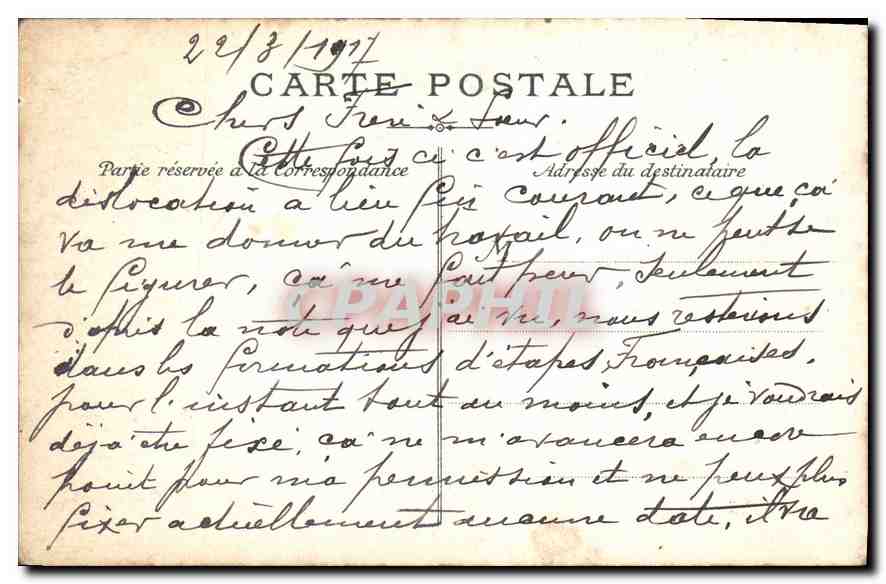 22/3/1917
CARTE POSTALE
Chers Frere & Sœur.
Cette fois ci c'est officiel, la
Partie réservée à la Correspondance
Adresse du destinataire
dislocation a lieu fin courant, ce que ça
va me donner du travail, on ne peut se
le figurer, ça me fait suer, seulement
CPAPHIL
d'après la note que j'ai vu, nous resterions
dans les formations d'étapes Françaises,
pour l'instant tout au moins, et je voudrais
déjà être fixé, ça ne m'avancera encore
point pour ma permission et ne peux plus
fixer actuellement aucune date, il va